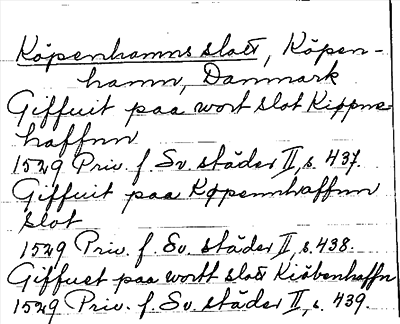 Köpenhamns slott, Köpen-
hamn, Danmark
Giffuit paa wort slot Kippne-
haffnn
1529 Priv. f. Sv. städer II, s. 437.
Giffuit paa Köpennhaffnn
slot
1529 Priv. f. Sv. städer II, s. 438.
Giffuet paa wortt slott Kiöbenhaffn
1529 Priv. f. Sv. städer II, s. 439.